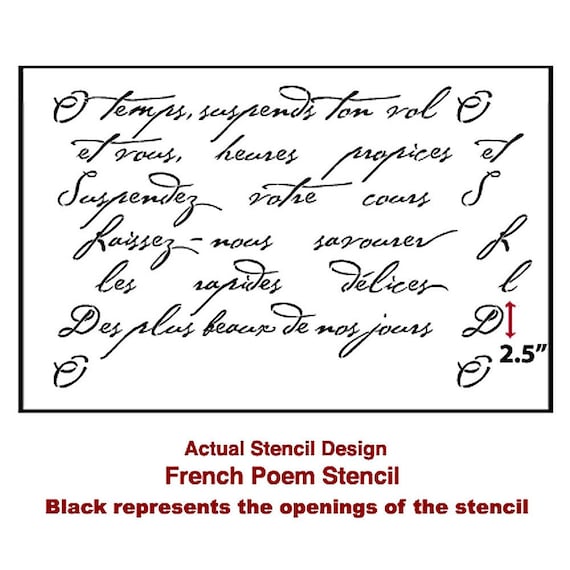 O temps, suspends ton vol O
et vous, heures propices et
Suspendez votre cours S
Laissez-nous savourer L
les rapides délices l
Des plus beaux de nos jours D
2.5"
O O
Actual Stencil Design
French Poem Stencil
Black represents the openings of the stencil